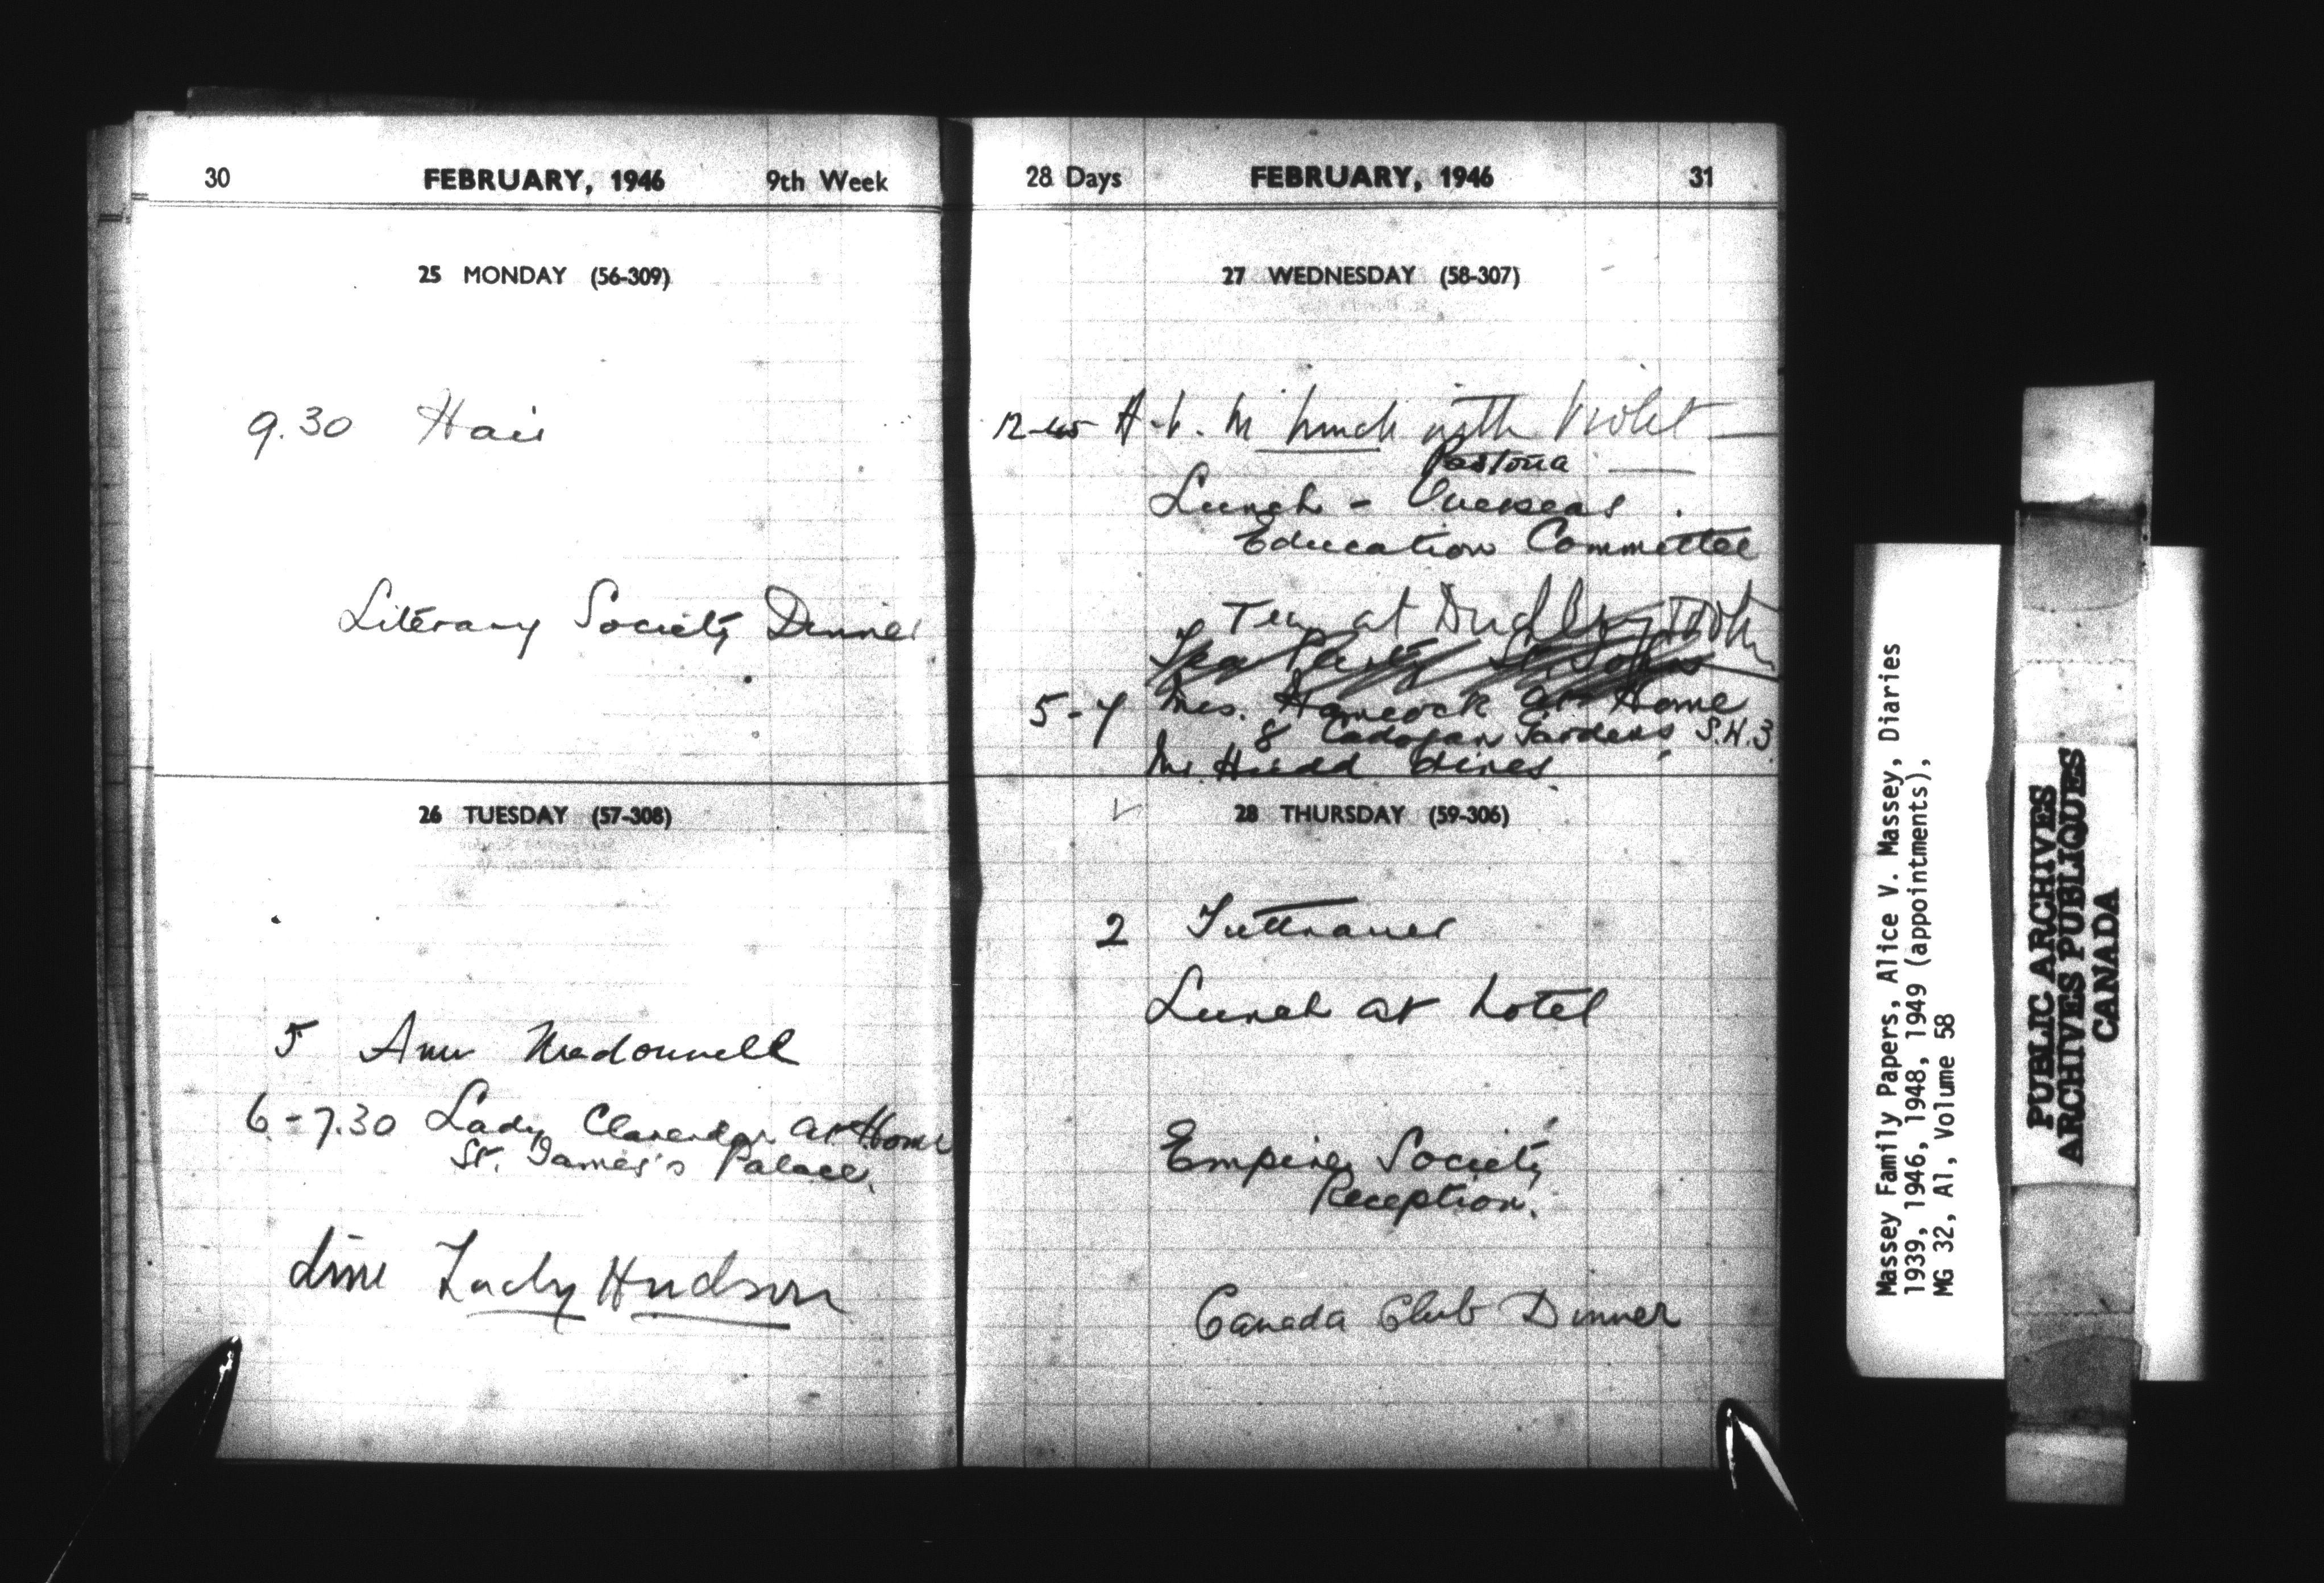 30 FEBRUARY, 1946 9th Week
25 MONDAY (56-309)
9.30 Hair
Literary Society Dinner
26 TUESDAY (57-308)
5 Ann Macdonnell
6-7.30 Lady Clarendon at Home
St. James's Palace.
dine Lady Hudson
28 Days FEBRUARY, 1946 31
27 WEDNESDAY (58-307)
12-45 A.V.M lunch with Violet
Lunch - Overseas
Education Committee
Tea at Dudley
Tea Party St. Johns
5-7 Mrs. Hancock at Home
8 Cadogan Gardens S.W.3
Mr. Hudd dines
28 THURSDAY (59-306)
2
Lunch at hotel
Empire Society
Reception.
Canada Club Dinner
Massey Family Papers, Alice V. Massey, Diaries
1939, 1946, 1948, 1949 (appointments),
MG 32, A1, Volume 58
PUBLIC ARCHIVES
ARCHIVES PUBLIQUES
CANADA